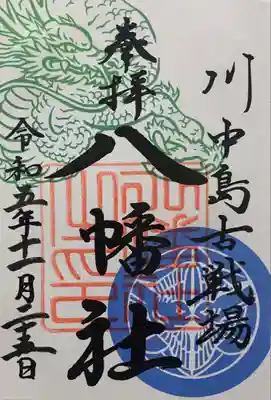 川中島古戦場
奉拝
八幡社
令和五年十一月二十五日